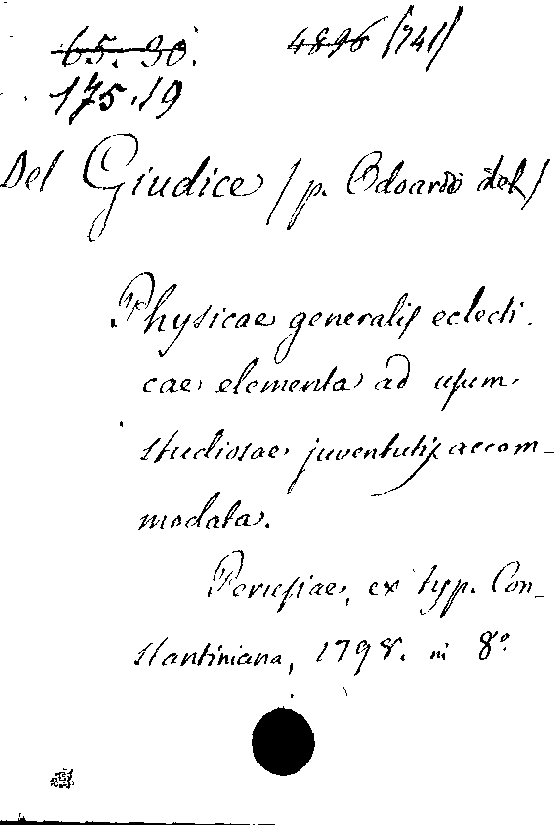 65. 30. 4896 (741)
175.19
Del Giudice (p. Odoardo del)
Physicae generalis eclecti-
cae elementa ad usum
studiosae juventutis accom-
modata.
Venetiae, ex typ. Con-
stantiniana, 1798. in 8º